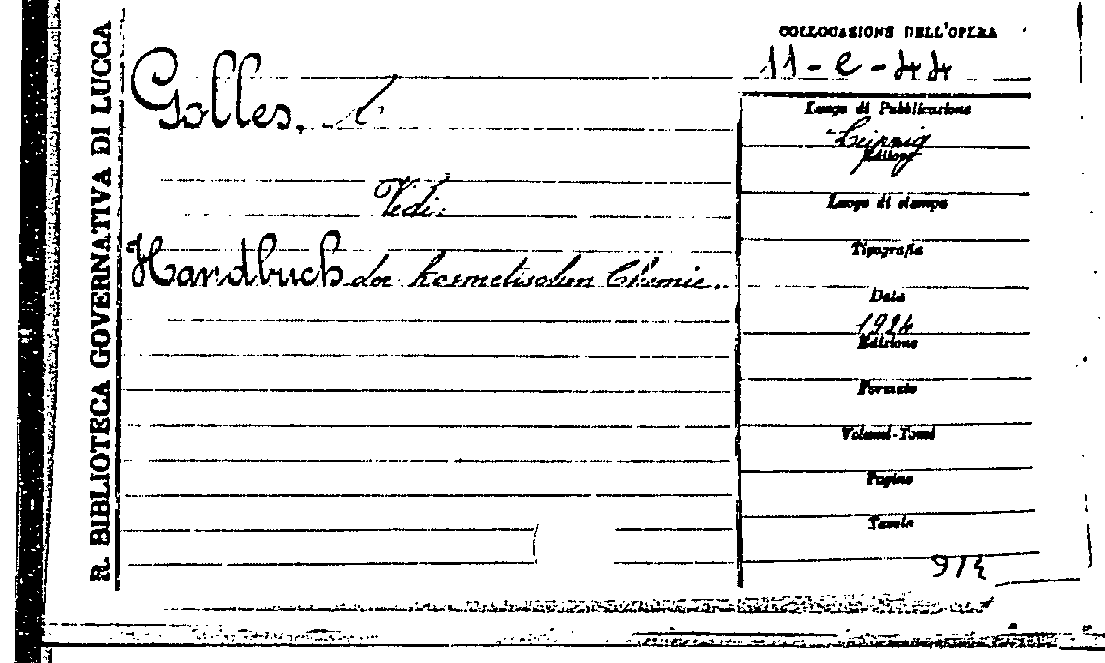 R. BIBLIOTECA GOVERNATIVA DI LUCCA
COLLOCAZIONE DELL'OPERA
11-e-44
Golles,
Vedi:
Handbuch der kosmetischen Chemie.
Luogo di Pubblicazione
Leipzig
Editore
Luogo di stampa
Tipografia
Data
1924
Edizione
Formato
Volumi-Tomi
Pagine
Tavole